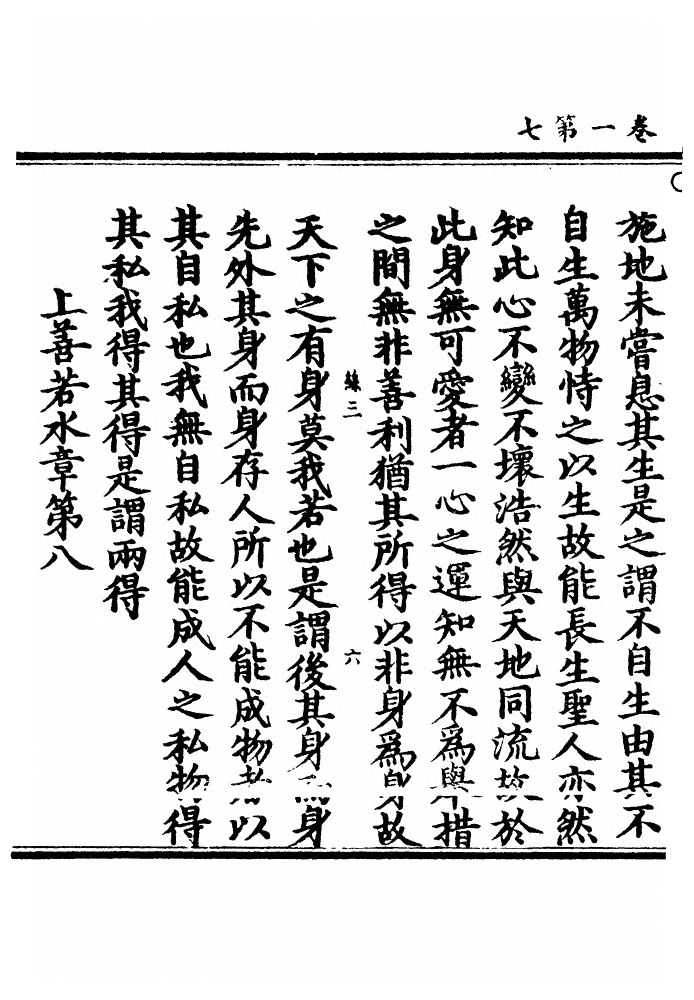 卷一第七
施地未嘗息其生是之謂不自生由其不
自生萬物恃之以生故能長生聖人亦然
知此心不變不壞浩然與天地同流故於
此身無可愛者一心之運知無不爲舉措
之間無非善利猶其所得以非身爲身故
絲三　六
天下之有身莫我若也是謂後其身而身
先外其身而身存人所以不能成物者以
其自私也我無自私故能成人之私物得
其私我得其得是謂兩得
上善若水章第八